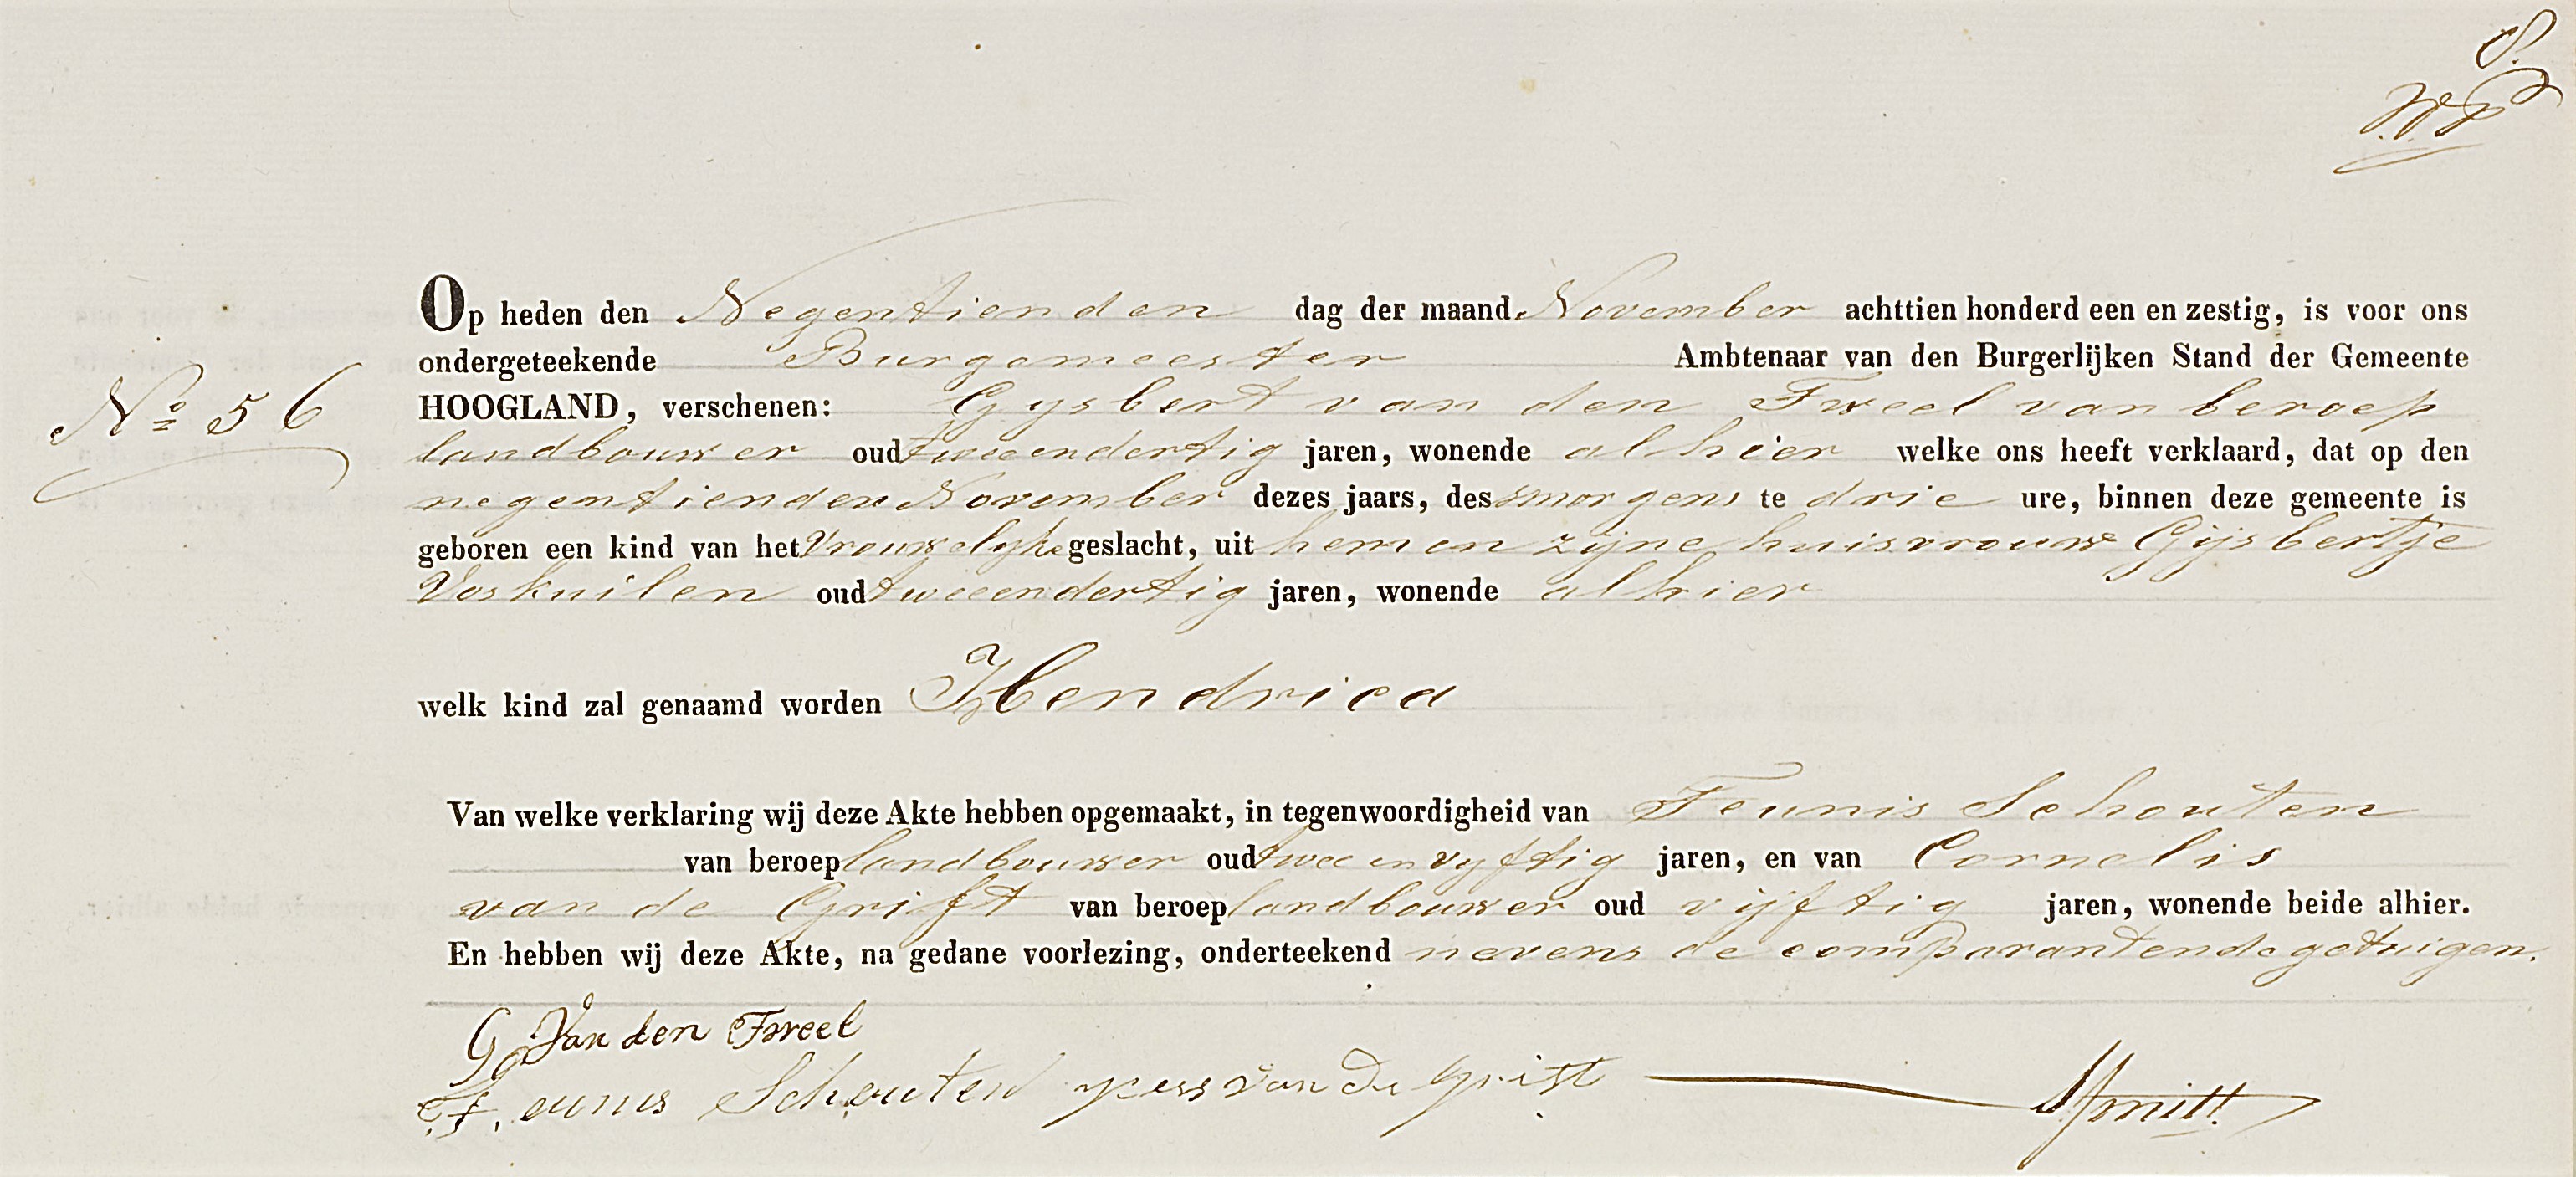 Op heden den Negentienden dag der maand November achttien honderd een en zestig, is voor ons
ondergeteekende Burgemeester Ambtenaar van den Burgerlijken Stand der Gemeente
No 56
HOOGLAND, verschenen: Gysbert van den Tweel van beroep
landbouwer oud tweeendertig jaren, wonende alhier welke ons heeft verklaard, dat op den
negentienden November dezes jaars, des smorgens te drie ure, binnen deze gemeente is
geboren een kind van het Vrouwelyke geslacht, uit hem en zijne huisvrouw Gijsbertje
Voskuilen oud tweeendertig jaren, wonende alhier
welk kind zal genaamd worden Hendrica
Van welke verklaring wij deze Akte hebben opgemaakt, in tegenwoordigheid van Teunis Schouten
van beroep landbouwer oud twee en vyftig jaren, en van Cornelis
van de Grift van beroep landbouwer oud vijftig jaren, wonende beide alhier.
En hebben wij deze Akte, na gedane voorlezing, onderteekend nevens de comparant en de getuigen.
G Van den Tweel
Teunis Schouten van de Grift Smitt